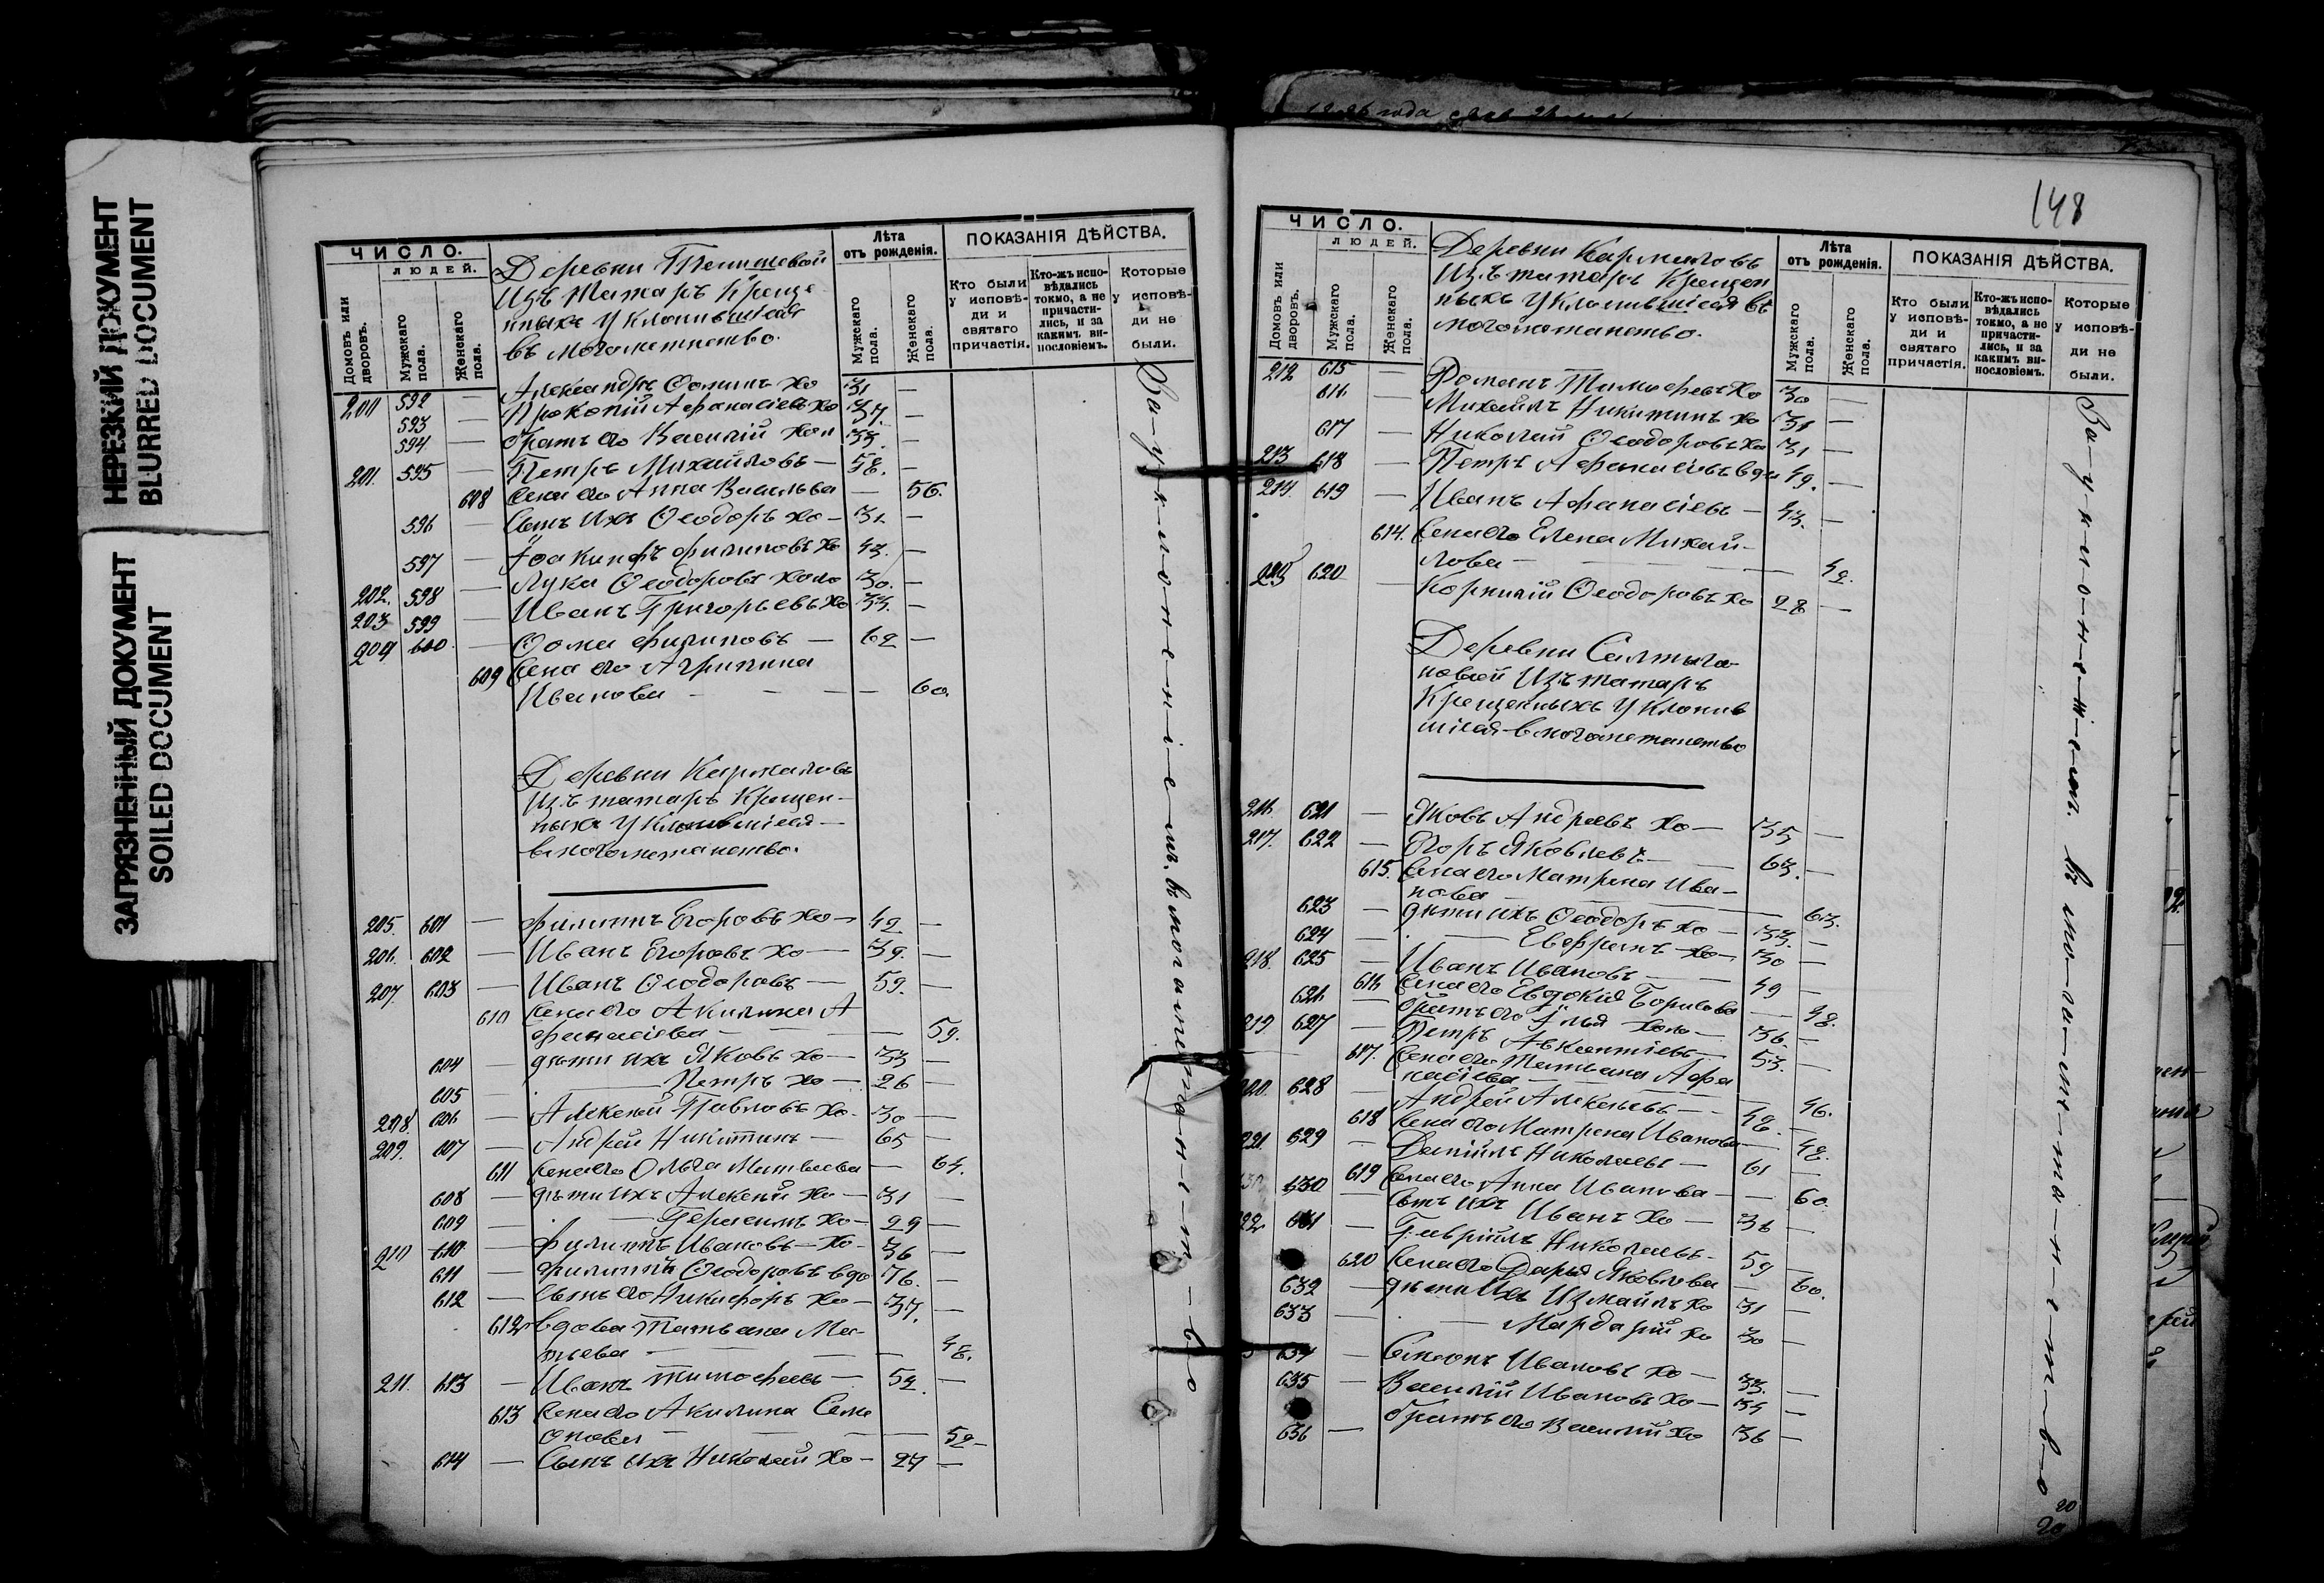 НЕРЕЗКИЙ ДОКУМЕНТ
BLURRED DOCUMENT
ЗАГРЯЗНЕННЫЙ ДОКУМЕНТ
SOILED DOCUMENT
ЧИСЛО.
ЛЮДЕЙ.
Домовъ или дворовъ.
Мужскаго пола.
Женскаго пола.
Деревни
Изъ татаръ Креще
нныхъ Уклонившіеся
въ
Лѣта
отъ рожденія.
Мужскаго пола.
Женскаго пола.
ПОКАЗАНІЯ ДѢЙСТВА.
Кто были
у исповѣ-
ди и
святаго
причастія.
Кто-жъ испо-
вѣдались
токмо, а не
причасти-
лись, и за
какимъ ви-
нословіемъ.
Которые
у исповѣ-
ди не
были.
200 592 — Александръ Фоминъ хо 31 —
593 — Прокопій Афанасіевъ хо 37. —
594 — братъ его Василій хол 33. —
201. 595 — Петръ Михайловъ — 58. —
608 Жена его Анна Васильева — 56.
596 — Сынъ ихъ Ѳеодоръ хо — 31 —
597 — Іоакинфъ Филиповъ хо 43. —
202. 598 — Лука Ѳеодоровъ холо 30. —
203 599 — Иванъ Григорьевъ хо 33. —
204 600 — Ѳома Филиповъ — 62 —
609 Жена его Агрипина
Иванова — — — 60.
Деревни Кармаловъ
Изъ татаръ Крещен-
ныхъ Уклонившіеся
205. 601 — Филиппъ Егоровъ хо — 42 —
206. 602 — Иванъ Егоровъ хо — 39. —
207. 603 — Иванъ Ѳеодоровъ — 59. —
610 Жена его Акилина А
фанасіева — — 59.
604 — дѣти ихъ Яковъ хо — 33 —
605 — Петръ хо — 26 —
208. 606 — Алексѣй Павловъ хо — 30 —
209. 607 — Андрей Никитинъ — 65 —
611 Жена его Ольга Матвѣева — 64.
608 — дѣти ихъ Алексѣй хо — 31 —
609 — Герасимъ хо — 29 —
210 610 — Филиппъ Ивановъ — хо — 36 —
611 — Филиппъ Ѳеодоровъ вдо 76. —
612 — Сынъ его Никифоръ хо — 37. —
612 вдова Татьяна Ма-
— — 48.
211. 613 — Иванъ Тимофеевъ — 52. —
613 Жена его Акилина Сем
онова — — — 52 —
614 — Сынъ ихъ Николай хо — 27 —
За уклоненіемъ въ
148
ЧИСЛО.
ЛЮДЕЙ.
Домовъ или дворовъ.
Мужскаго пола.
Женскаго пола.
Деревни Кармаловъ
Изъ татаръ Крещен
ныхъ Уклонившіеся въ
Лѣта
отъ рожденія.
Мужскаго пола.
Женскаго пола.
ПОКАЗАНІЯ ДѢЙСТВА.
Кто были
у исповѣ-
ди и
святаго
причастія.
Кто-жъ испо-
вѣдались
токмо, а не
причасти-
лись, и за
какимъ ви-
нословіемъ.
Которые
у исповѣ-
ди не
были.
212 615 — Романъ Тимофеевъ хо 30 —
616 — Михаилъ Никитинъ хо 31 —
617 — Николай Ѳеодоровъ хо 31 —
213 618 — Петръ Афанасіевъ вдо 49. —
214. 619 — Иванъ Афанасіевъ — 43. —
614. Жена его Елена Михай-
лова — — 42.
215 620 — Корнилій Ѳеодоровъ хо 28 —
Деревни Салтыга-
новой Изъ татаръ
Крещенныхъ Уклонив
шіеся
216. 621 — Яковъ Андреевъ хо — 35 —
217. 622 — Егоръ Яковлевъ — 63. —
615. Жена его Матрена Ива-
нова — — 63.
623 — дѣти ихъ Ѳеодоръ хо — 33. —
624 — хо — 30 —
218. 625 — Иванъ Ивановъ — 49 —
616 Жена его Евдокія Борисова — 48.
626 — братъ его Илья холо — 36. —
219 627 — Петръ — 53. —
617. Жена его Татьяна Афа
насіева — — 46.
220. 628 — Андрей Алексѣевъ — 48. —
618 Жена его Матрена Иванова — 48.
221. 629 — Даніилъ Николаевъ — 61 —
619 Жена его Анна Иванова — 60.
630 — Сынъ ихъ Иванъ хо — 36 —
222 631 — Гавріилъ Николаевъ — 59 —
620 Жена его Дарья Яковлева — 60.
632 — дѣти ихъ Измаилъ хо 31 —
633 — Мардарій хо 30 —
634 — Симеонъ Ивановъ хо — 33. —
635 — Василій Ивановъ хо — 34 —
636 — братъ его Василій хо 36 —
За уклоненіемъ въ
20
20